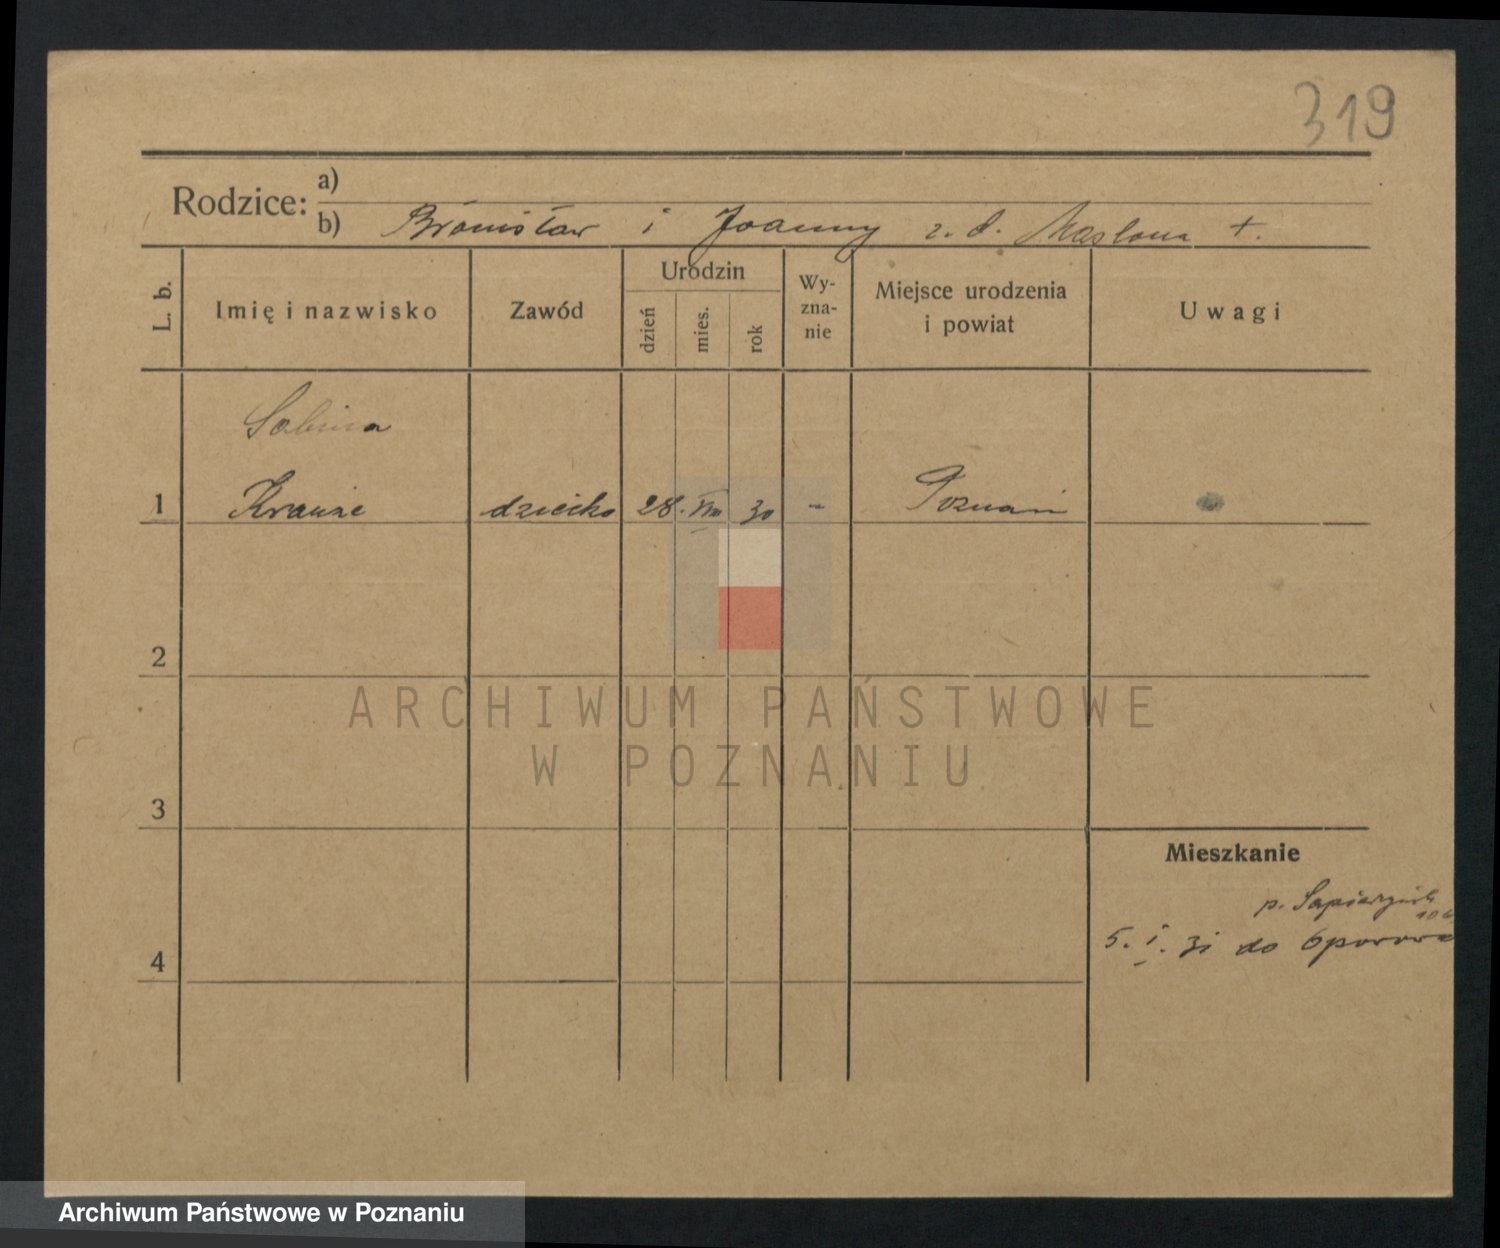 319
Rodzice:
a)
b) Bronisław i Joanny z. d. Maslona +.
L. b.
Imię i nazwisko
Zawód
Urodzin
dzień
mies.
rok
Wy-
zna-
nie
Miejsce urodzenia
i powiat
Uwagi
Sabina
1 Krauze dziecko 28. VIII 30 - Poznań
2
3
4
Mieszkanie
p. Sapierzyńs
5. I. 31 do Oporowa
ARCHIWUM PAŃSTWOWE
W POZNANIU
Archiwum Państwowe w Poznaniu